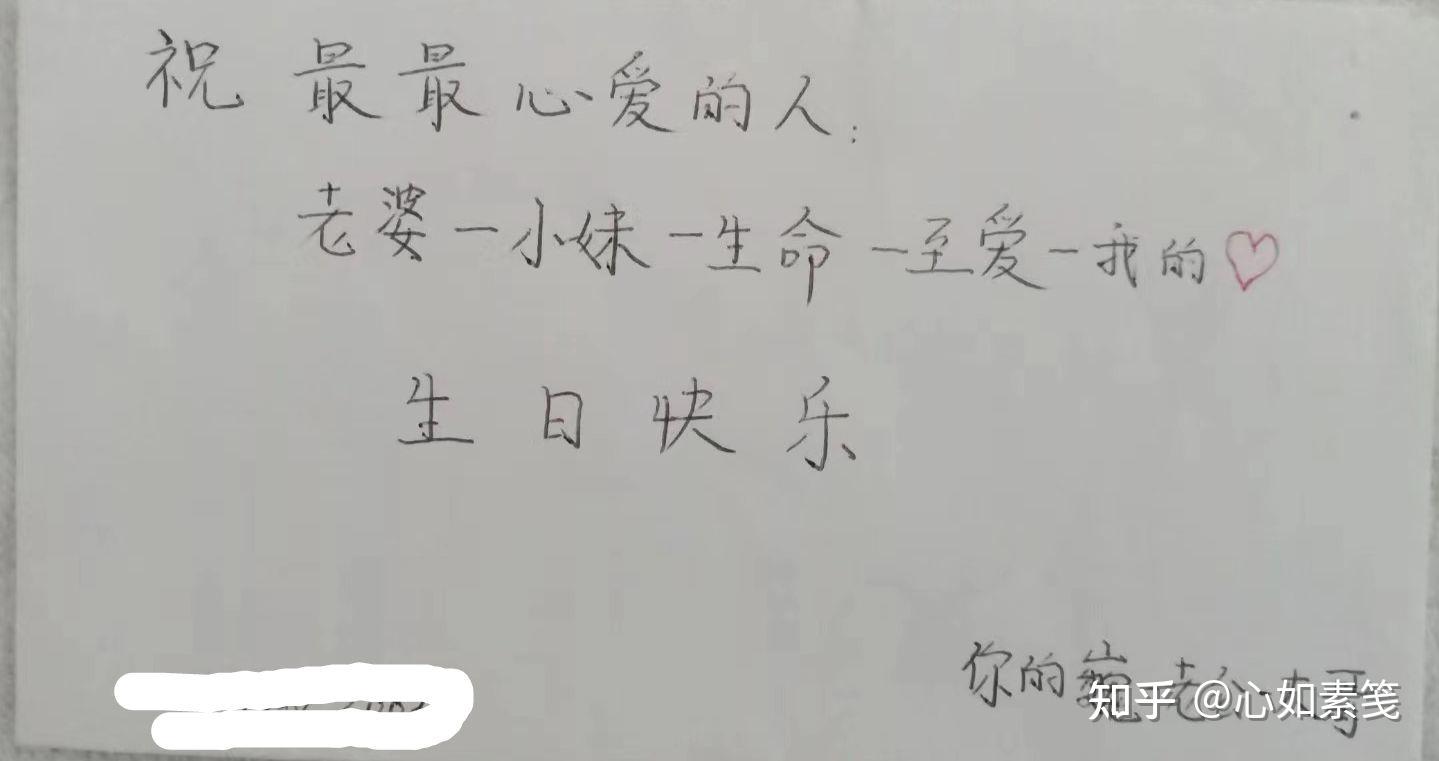 祝 最最心爱的人:
老婆—小妹—生命—至爱—我的♡
生日快乐
你的
知乎 @心如素笺